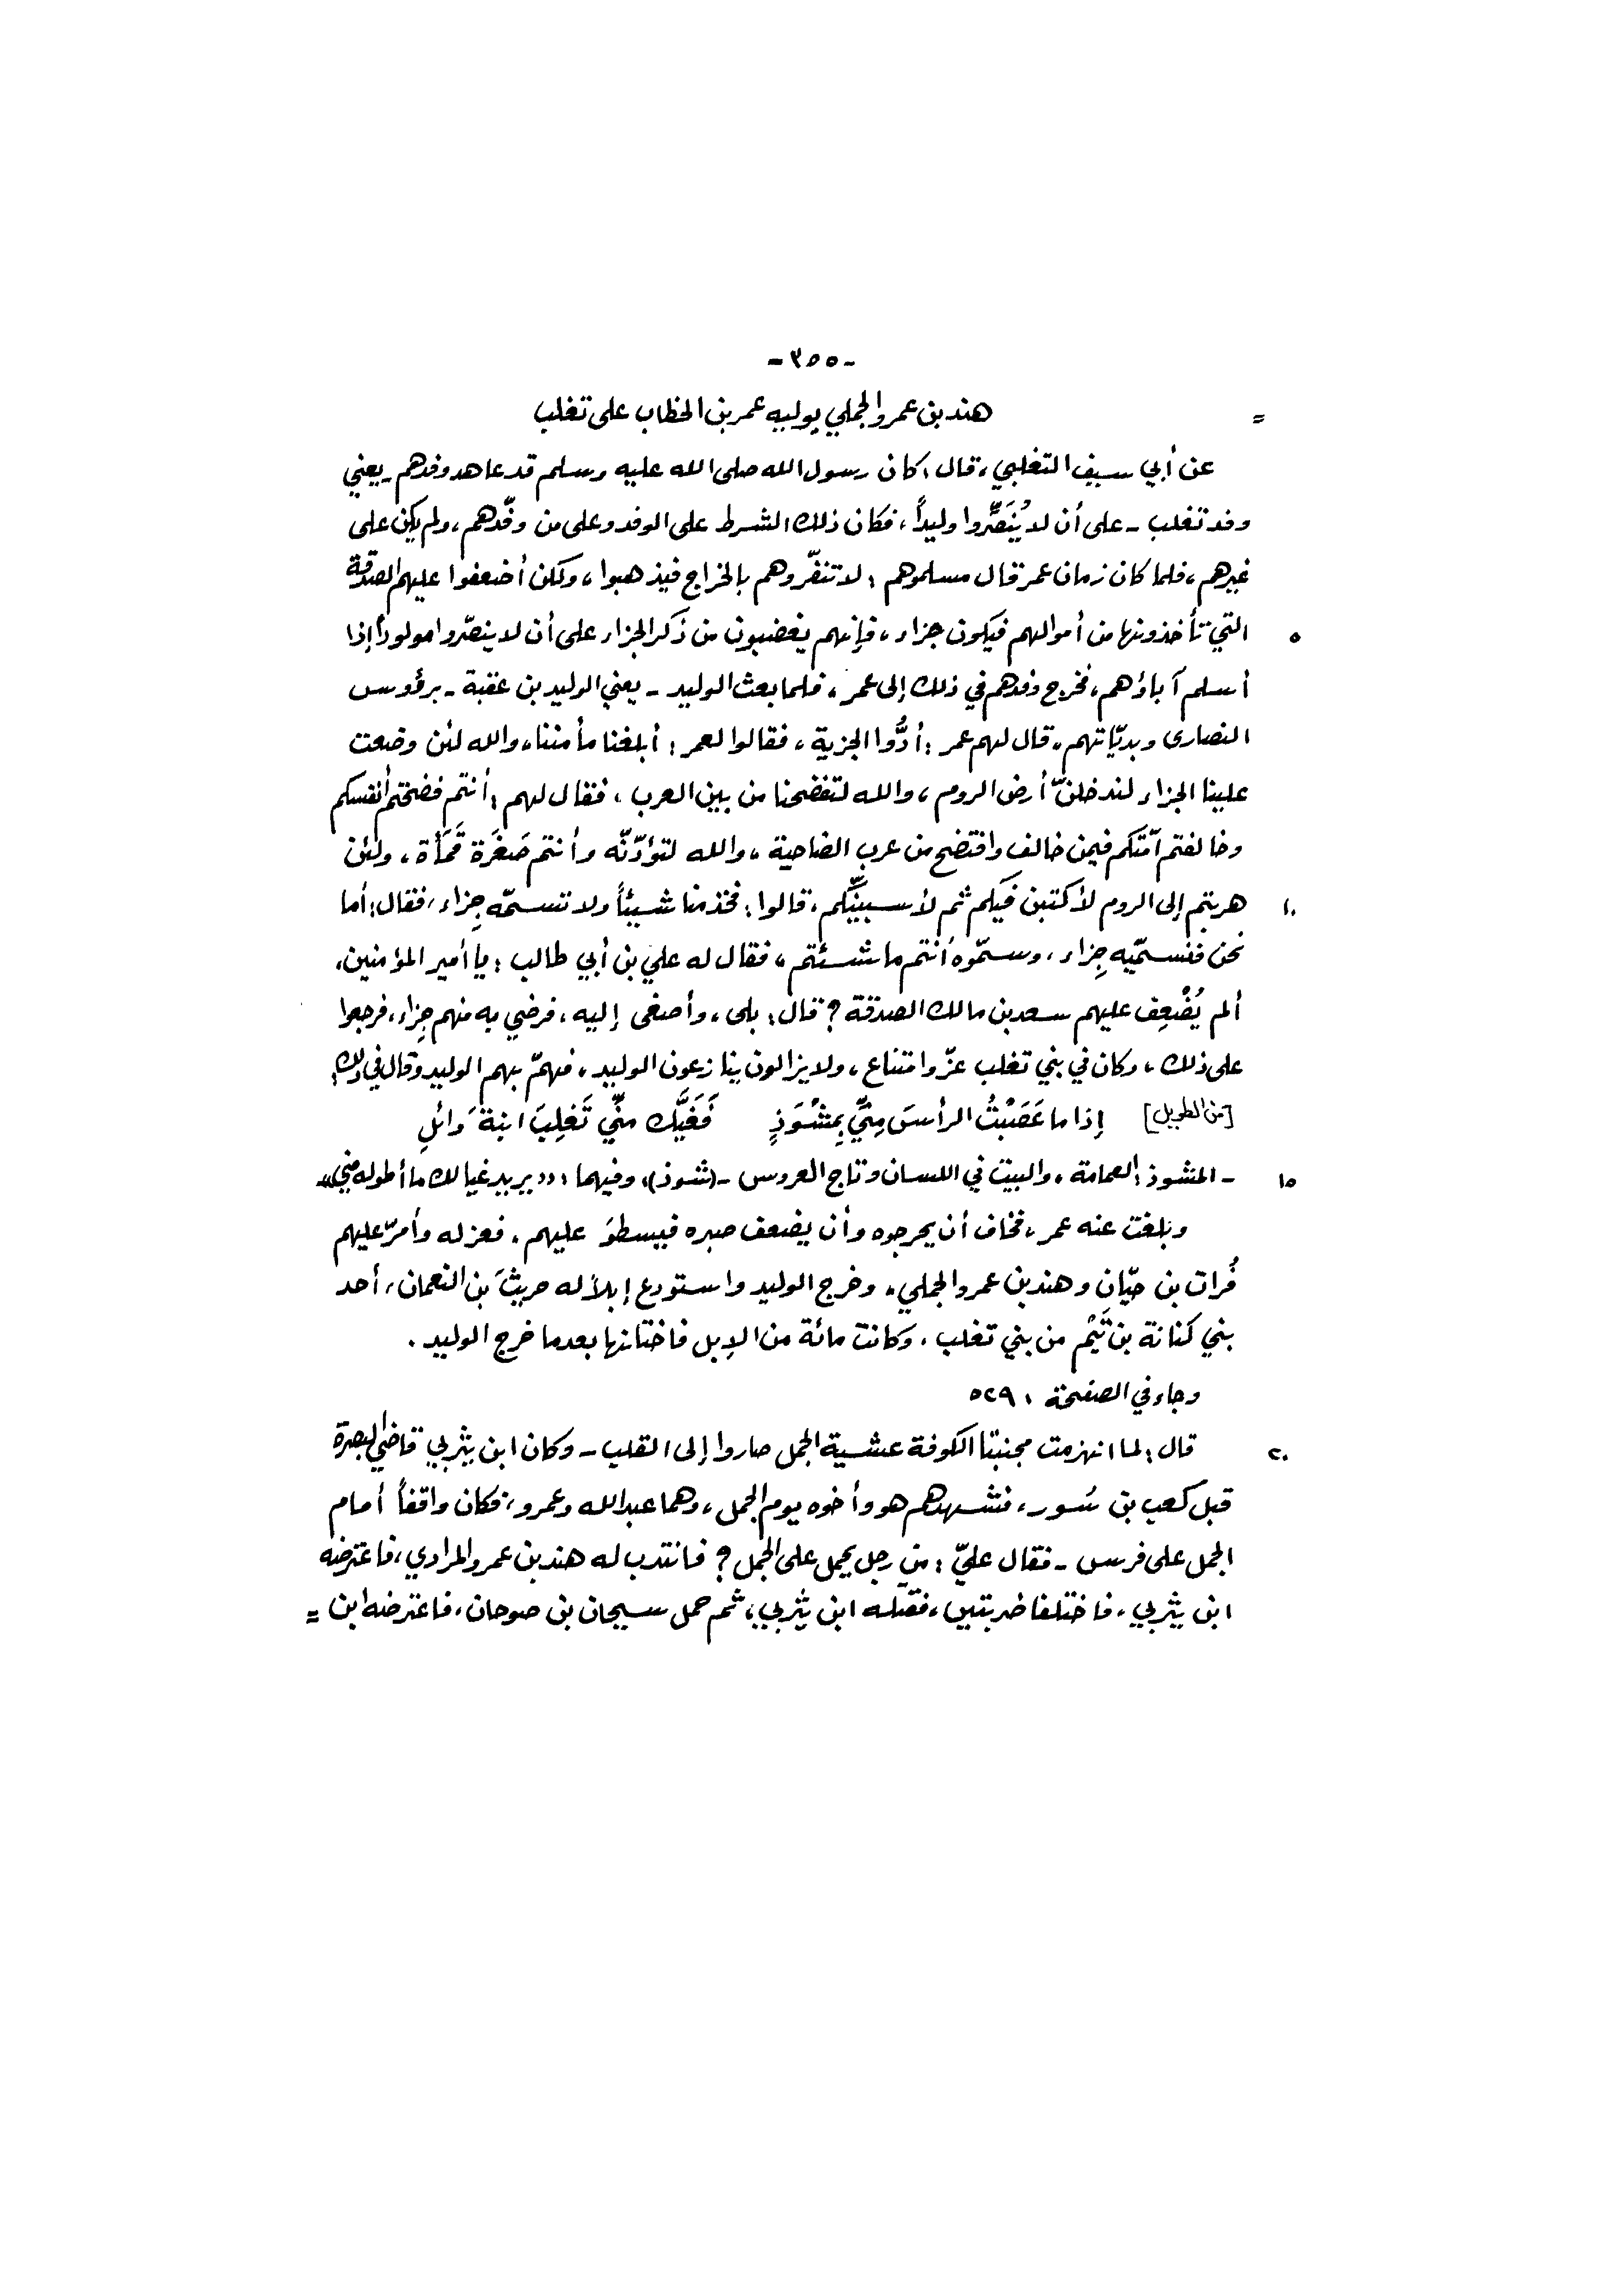 -٣٥٥-
= هند بن عمرو الجملي يوليه عمر بن الخطاب على تغلب
عن أبي سيف التغلبي، قال: كان رسول الله صلى الله عليه وسلم قد عاهد وفدهم - يعني
وفد تغلب - على أن لا يُنَصِّروا وليداً، فكان ذلك الشرط على الوفد وعلى من وفّدهم، ولم يكن على
غيرهم، فلما كان زمان عمر قال مسلموهم: لا تنفّروهم بالخراج فيذهبوا، ولكن أضعفوا عليهم الصدقة
٥ التي تأخذونها من أموالهم فيكون جزاء، فإنهم يغضبون من ذكر الجزاء على أن لا ينصّروا مولوداً إذا
أسلم آباؤهم، فخرج وفدهم في ذلك إلى عمر، فلما بعث الوليد - يعني الوليد بن عقبة - برؤوس
النصارى وبديّانهم، قال لهم عمر: أدُّوا الجزية، فقالوا لعمر: أبلغنا مأمننا، والله لئن وضعت
علينا الجزاء لندخلنّ أرض الروم، والله لتفضحنا من بين العرب، فقال لهم: أنتم فضحتم أنفسكم
وخالفتم أمّتكم فيمن خالف وافتضح من عرب الضاحية، والله لتؤدّنّه وأنتم صَغَرَة قَمَأَة، ولئن
١٠ هربتم إلى الروم لأكتبن فيكم ثم لأسبينّكم، قالوا: فخذ منا شيئاً ولا تسمّه جِزاء، فقال: أما
نحن فنسمّيه جِزاء، وسمّوه أنتم ما شئتم، فقال له علي بن أبي طالب: يا أمير المؤمنين،
ألم يُضْعِف عليهم سعد بن مالك الصدقة؟ قال: بلى، وأصغى إليه، فرضي به منهم جِزاء، فرجعوا
على ذلك، وكان في بني تغلب عزّ وامتناع، ولا يزالون ينازعون الوليد، فهمّ بهم الوليد وقال في ذلك:
[من الطويل] إذا ما عَصَبْتُ الرأسَ مِنّي بِمِشْوَذٍ فَغَيَّك منّي تَغلِبَ ابنةَ وَائلِ
١٥ - المشوذ: العمامة، والبيت في اللسان وتاج العروس - (شوذ)، وفيهما: «يريد غيا لك ما أطوله مني»
وبلغت عنه عمر، فخاف أن يحرجوه وأن يضعف صبره فيسطوَ عليهم، فعزله وأمّر عليهم
فُرات بن حيّان وهند بن عمرو الجملي، وخرج الوليد واستودع إبلاً له حريثَ بن النعمان، أحد
بني كنانة بن تَيْم من بني تغلب، وكانت مائة من الإبل فاختانها بعدما خرج الوليد.
وجاء في الصفحة ٥٢٩:
٢٠ قال: لما انهزمت مجنبتا الكوفة عشية الجمل صاروا إلى القلب - وكان ابن يثربي قاضي البصرة
قبل كعب بن سُور، فشهدهم هو وأخوه يوم الجمل، وهما عبدالله وعمرو، فكان واقفاً أمام
الجمل على فرس - فقال عليّ: من رجل يحمل على الجمل؟ فانتدب له هند بن عمرو المرادي، فاعترضه
ابن يثربي، فاختلفا ضربتين، فقتله ابن يثربي، ثم حمل سيحان بن صوحان، فاعترضه ابن =